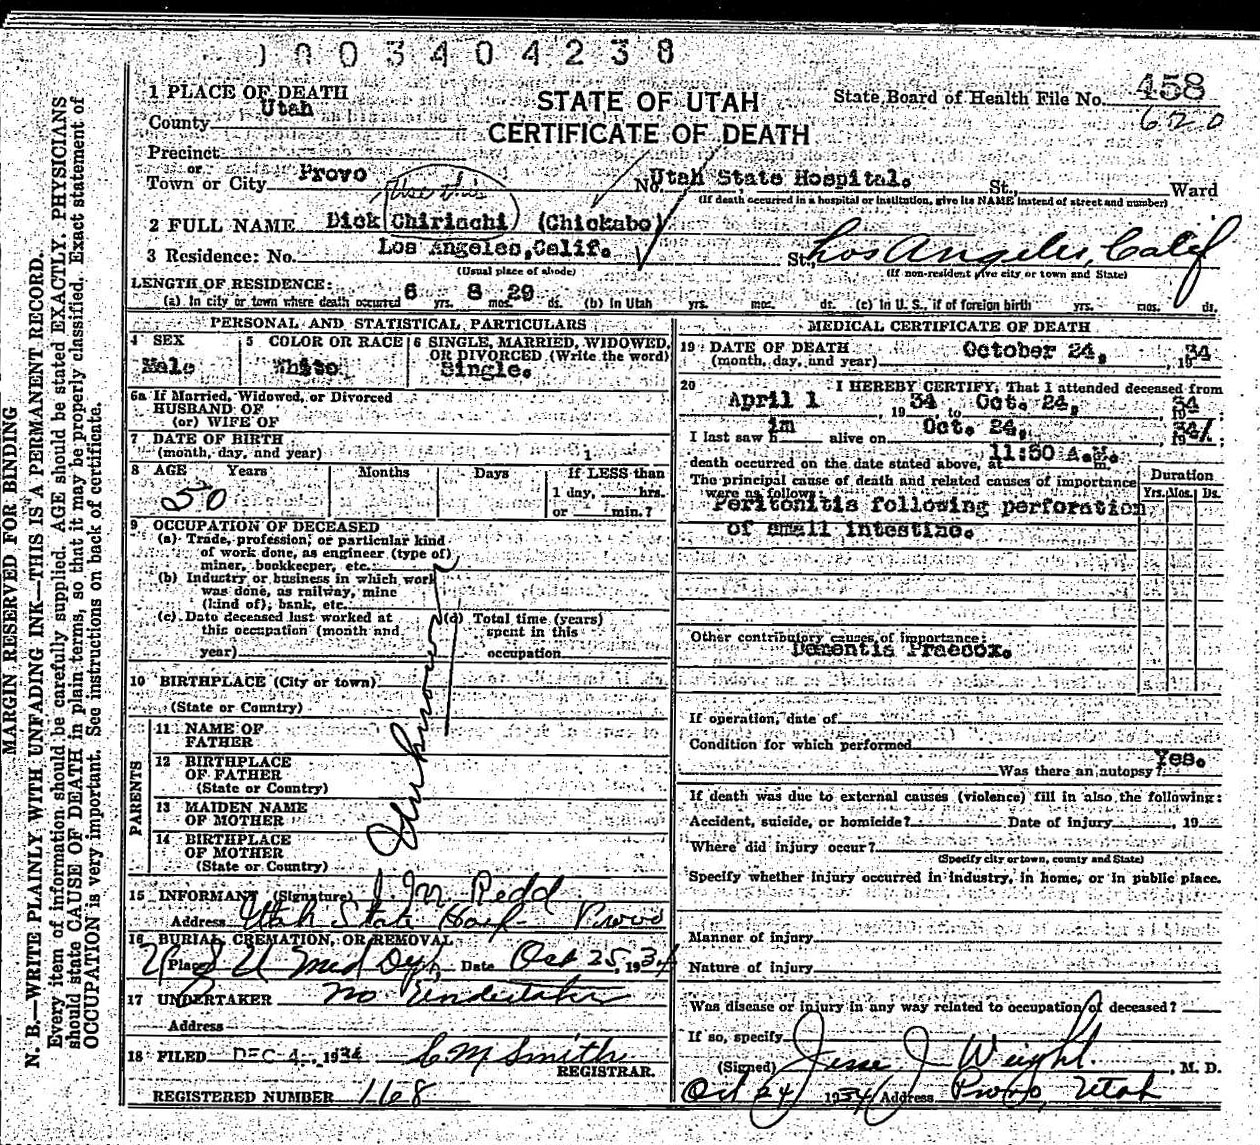 0003404238
1 PLACE OF DEATH
County Utah
STATE OF UTAH
CERTIFICATE OF DEATH
State Board of Health File No. 458
620
Precinct
or
Town or City Provo
No. Utah State Hospital. St., Ward
(If death occurred in a hospital or institution, give its NAME instead of street and number)
Use this
2 FULL NAME Dick Chiriachi (Chickabo)
3 Residence: No. Los Angeles, Calif. St., Los Angeles, Calif
(Usual place of abode) (If non-resident give city or town and State)
LENGTH OF RESIDENCE:
(a) In city or town where death occurred 6 yrs. 8 mos. 29 ds. (b) In Utah yrs. mos. ds. (c) in U. S., if of foreign birth yrs. mos. ds.
PERSONAL AND STATISTICAL PARTICULARS
4 SEX
Male
5 COLOR OR RACE
White
6 SINGLE, MARRIED, WIDOWED, OR DIVORCED (Write the word)
Single.
6a If Married, Widowed, or Divorced
HUSBAND OF
(or) WIFE OF
7 DATE OF BIRTH
(month, day, and year)
8 AGE Years Months Days If LESS than
50
1 day, hrs.
or min.?
9 OCCUPATION OF DECEASED
(a) Trade, profession, or particular kind
of work done, as engineer (type of)
miner, bookkeeper, etc.
(b) Industry or business in which work
was done, as railway, mine
(kind of); bank, etc.
(c) Date deceased last worked at
this occupation (month and
year)
(d) Total time (years)
spent in this
occupation
10 BIRTHPLACE (City or town)
(State or Country)
Unknown
PARENTS
11 NAME OF
FATHER
12 BIRTHPLACE
OF FATHER
(State or Country)
13 MAIDEN NAME
OF MOTHER
14 BIRTHPLACE
OF MOTHER
(State or Country)
15 INFORMANT (Signature) Redd
Address Utah State Hosp. Provo
16 BURIAL, CREMATION, OR REMOVAL
Place U Med Date Oct 25, 1934
17 UNDERTAKER No Undertaker
Address
18 FILED DEC 4, 1934 C M Smith
REGISTRAR.
REGISTERED NUMBER 168
MEDICAL CERTIFICATE OF DEATH
19 DATE OF DEATH
(month, day, and year) October 24, 1934
20 I HEREBY CERTIFY, That I attended deceased from
April 1, 1934 to Oct. 24, 1934;
I last saw him alive on Oct. 24, 1934;
death occurred on the date stated above, at 11:50 A.M. m.
The principal cause of death and related causes of importance
were as follows
Duration
Yrs. Mos. Ds.
Peritonitis following perforation
of small intestine.
Other contributory causes of importance:
Dementia Praecox.
If operation, date of
Condition for which performed
Was there an autopsy? Yes.
If death was due to external causes (violence) fill in also the following:
Accident, suicide, or homicide? Date of injury , 19
Where did injury occur?
(Specify city or town, county and State)
Specify whether injury occurred in industry, in home, or in public place.
Manner of injury
Nature of injury
Was disease or injury in any way related to occupation of deceased?
If so, specify
(Signed) Jesse J Weight, M. D.
Oct 24 1934 Address Provo, Utah
MARGIN RESERVED FOR BINDING
N. B.—WRITE PLAINLY WITH UNFADING INK—THIS IS A PERMANENT RECORD.
Every item of information should be carefully supplied. AGE should be stated EXACTLY. PHYSICIANS
should state CAUSE OF DEATH in plain terms, so that it may be properly classified. Exact statement of
OCCUPATION is very important. See instructions on back of certificate.